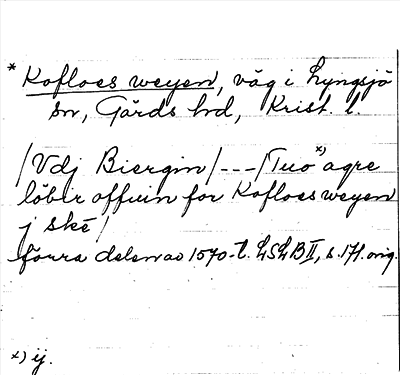 * Kofloes weyen, väg i Lyngsjö
sn, Gärds hd, Krist. l.
/Vdj Biergin/---/Tuo x) agre
löbir offuin for Kofloes weyen
j skē/
förra delen av 1570-t. LSLB II, s. 171. orig.
x) ij.